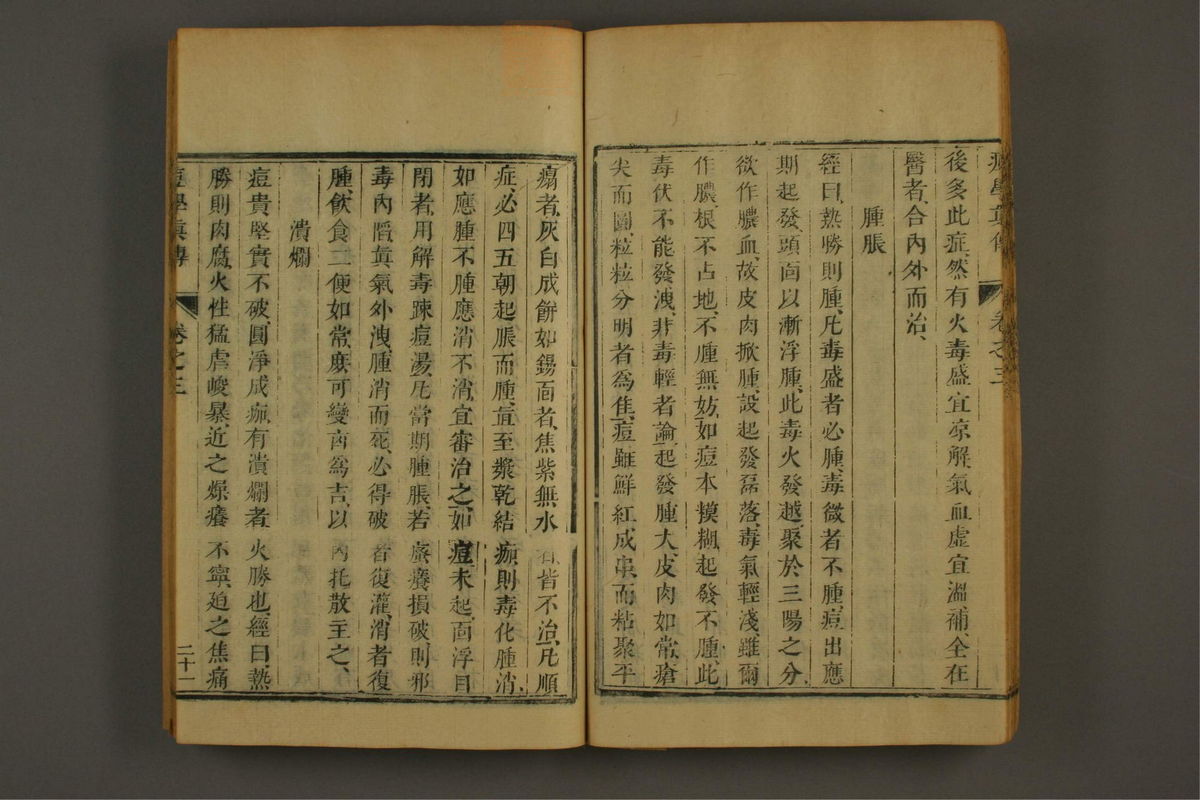 痘學眞傳 卷之三
後多此症、然有火毒盛、宜凉解、氣血虛、宜溫補、全在
醫者、合內外而治、
腫脹
經曰、熱勝則腫、凡毒盛者必腫、毒微者不腫、痘出應
期起發、頭面以漸浮腫、此毒火發越、聚於三陽之分、
欲作膿血、故皮肉掀腫、設起發磊落、毒氣輕淺、雖爾
作膿、根不占地、不腫無妨、如痘本模糊、起發不腫、此
毒伏不能發洩、非毒輕者論、起發腫大、皮肉如常、瘡
尖而圓、粒粒分明者爲佳、痘雖鮮紅、成串而粘聚平
塌者、灰白成餅如錫面者、焦紫無水者、皆不治、凡順
症、必四五朝起脹而腫、直至漿乾結痂、則毒化腫消、
如應腫不腫、應消不消、宜審治之、如痘未起、面浮目
閉者、用解毒疎痘湯、凡當期腫脹、若瘡癢損破、則邪
毒內陷、眞氣外洩、腫消而死、必得破者復灌、消者復
腫、飲食二便如常、庶可變凶爲吉、以內托散主之、
潰爛
痘貴堅實不破、圓淨成痂、有潰爛者、火勝也、經曰、熱
勝則肉腐、火性猛虐峻暴、近之燥癢不寧、迫之焦痛
痘學眞傳 卷之三 二十一